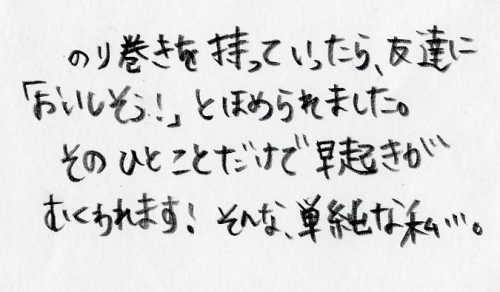 のり巻きを持っていったら、友達に
「おいしそう！」とほめられました。
そのひとことだけで早起きが
むくわれます！そんな、単純な私…。